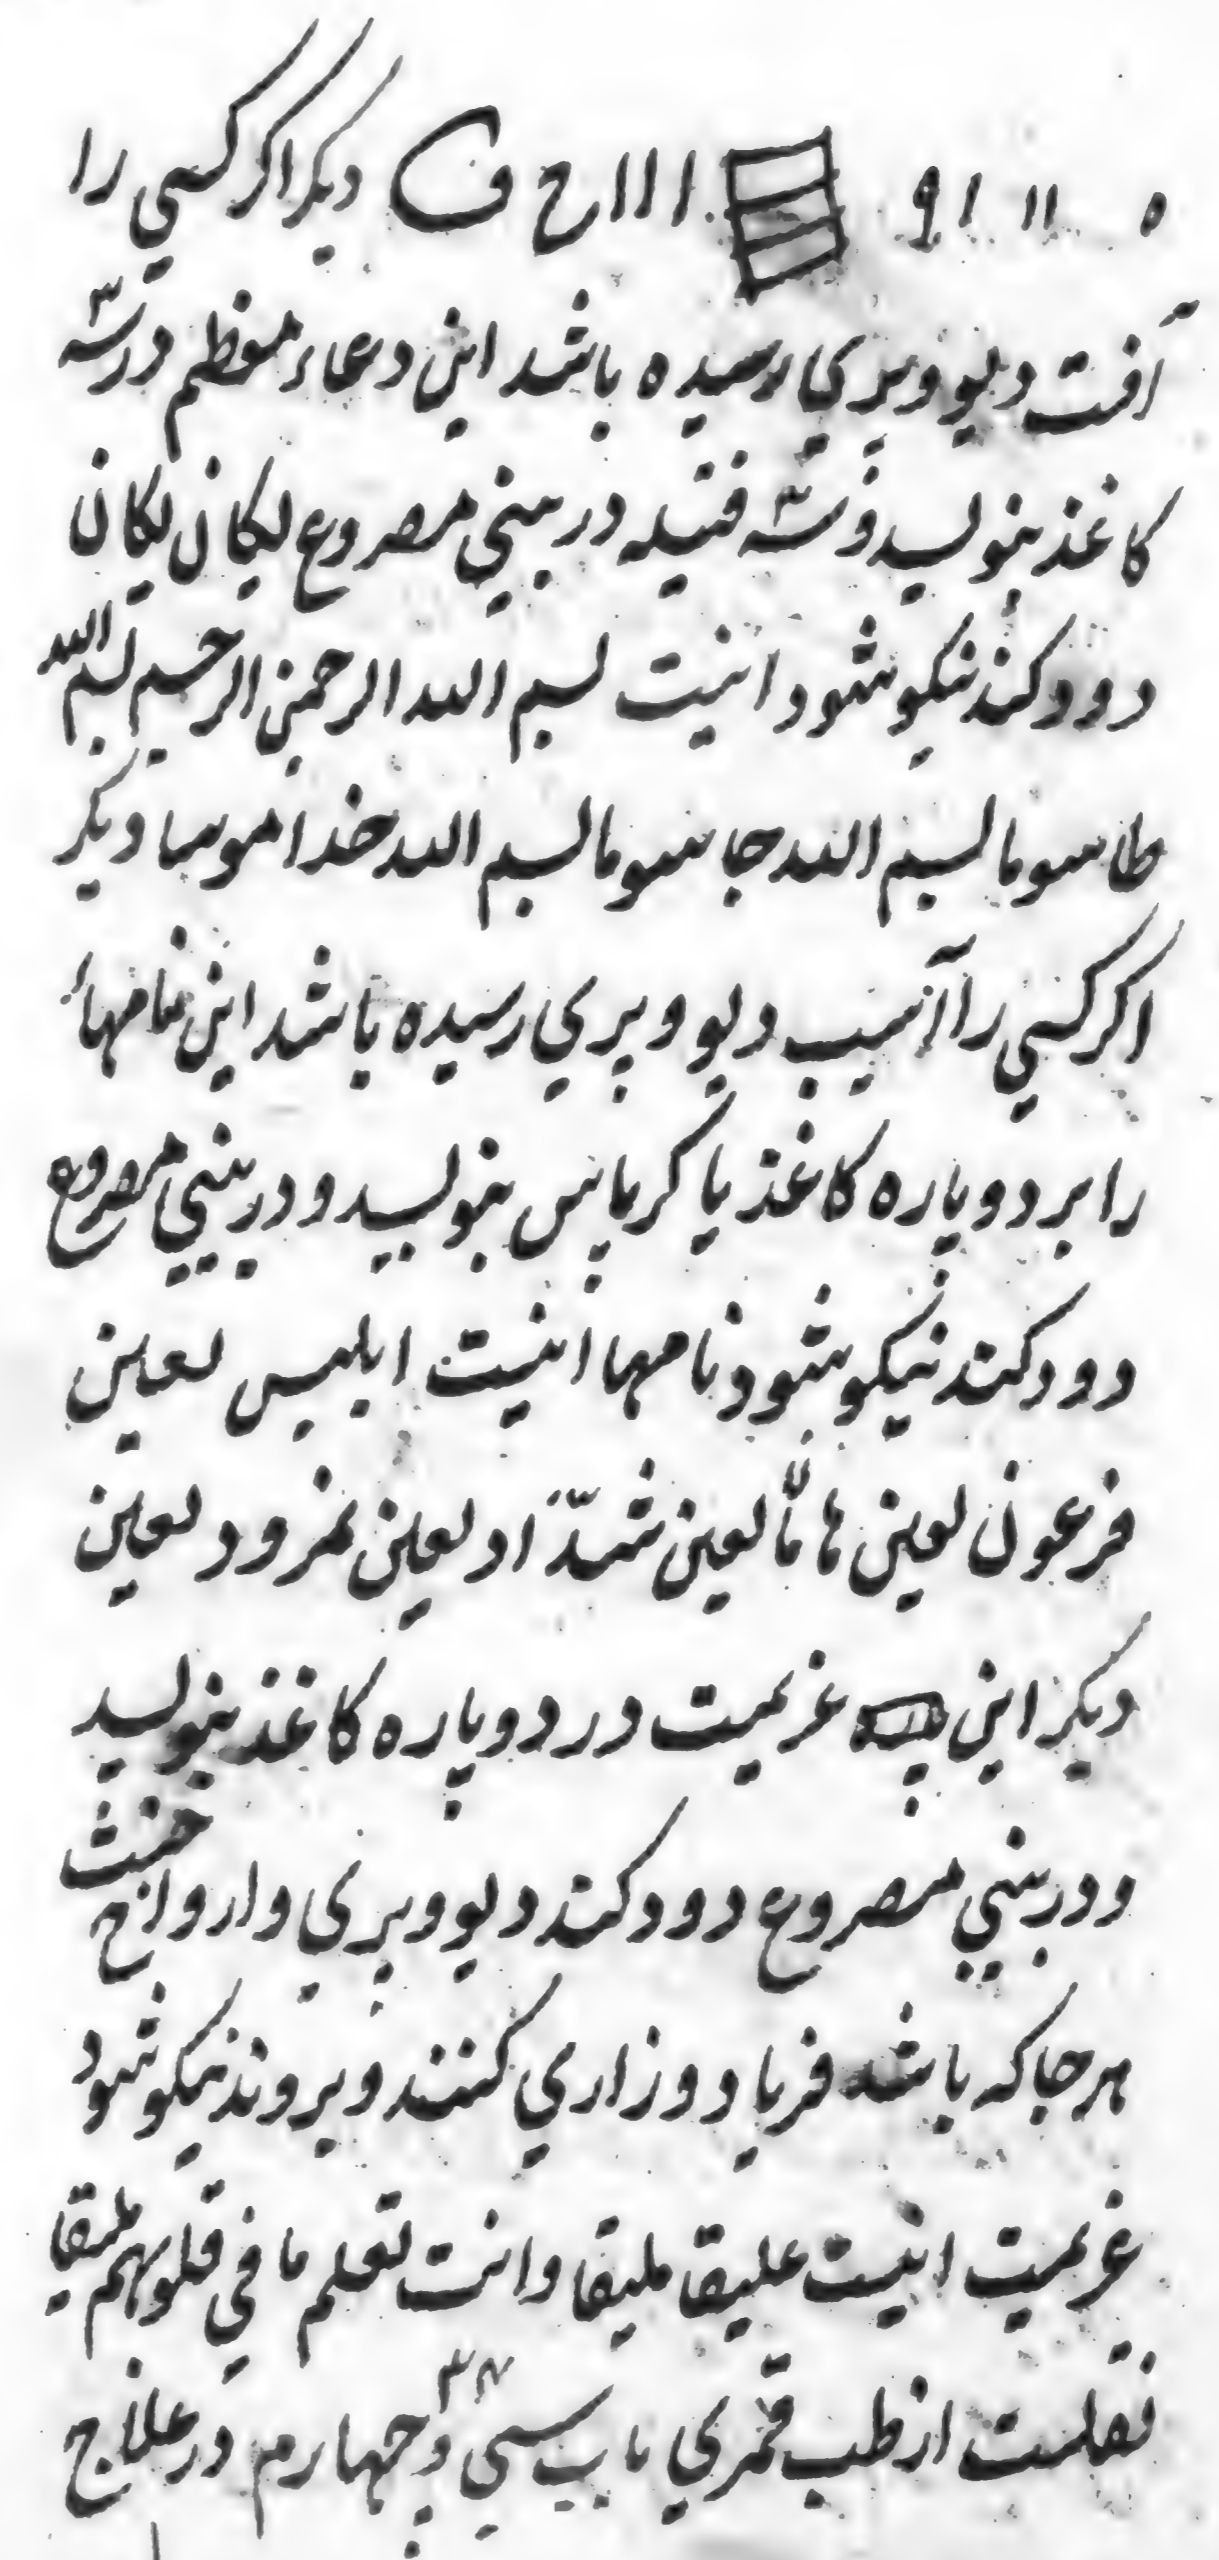 ه ١١ ٩١ ١١١ ح ف دیکر اکر کسي را
آفت دیو و پري رسیده باشد این دعاء معظم در سه
کاغذ بنویسد و سه فتیله در بیني مصروع یکان یکان
دود کند نیکو شود اینست بسم الله الرحمن الرحیم بسم الله
طاسوما بسم الله جاسوما بسم الله خداموسا دیکر
اکر کسي را آسیب دیو و پري رسیده باشد این نامهاء
را بر دو پاره کاغذ یا کرپاس بنویسد و در بیني مصروع
دود کند نیکو شود نامها اینست ابلیس لعین
فرعون لعین هامان لعین شدّاد لعین نمرود لعین
دیکر این عزیمت در دو پاره کاغذ بنویسد
و در بیني مصروع دود کند دیو و پري و ارواح خبث
هر جا که باشد فریاد و زاري کنند و بروند نیکو شود
عزیمت اینست علیقا ملیقا وانت تعلم ما في قلوبهم طیقا
نقلست از طب قمري باب سي و چهارم ٣٤ در علاج